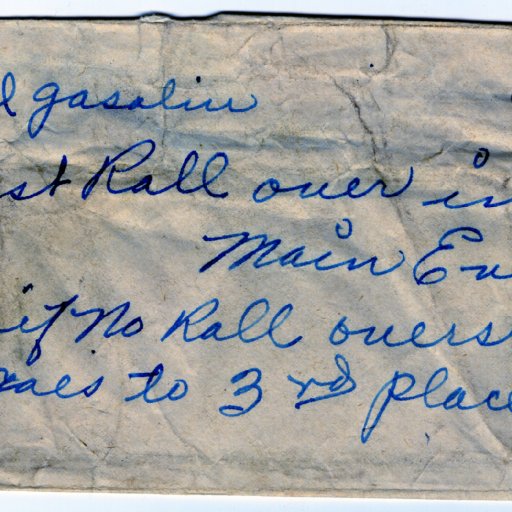 l gasolin
st Rall over in
Main Ev
if No Rall overs
goes to 3rd place